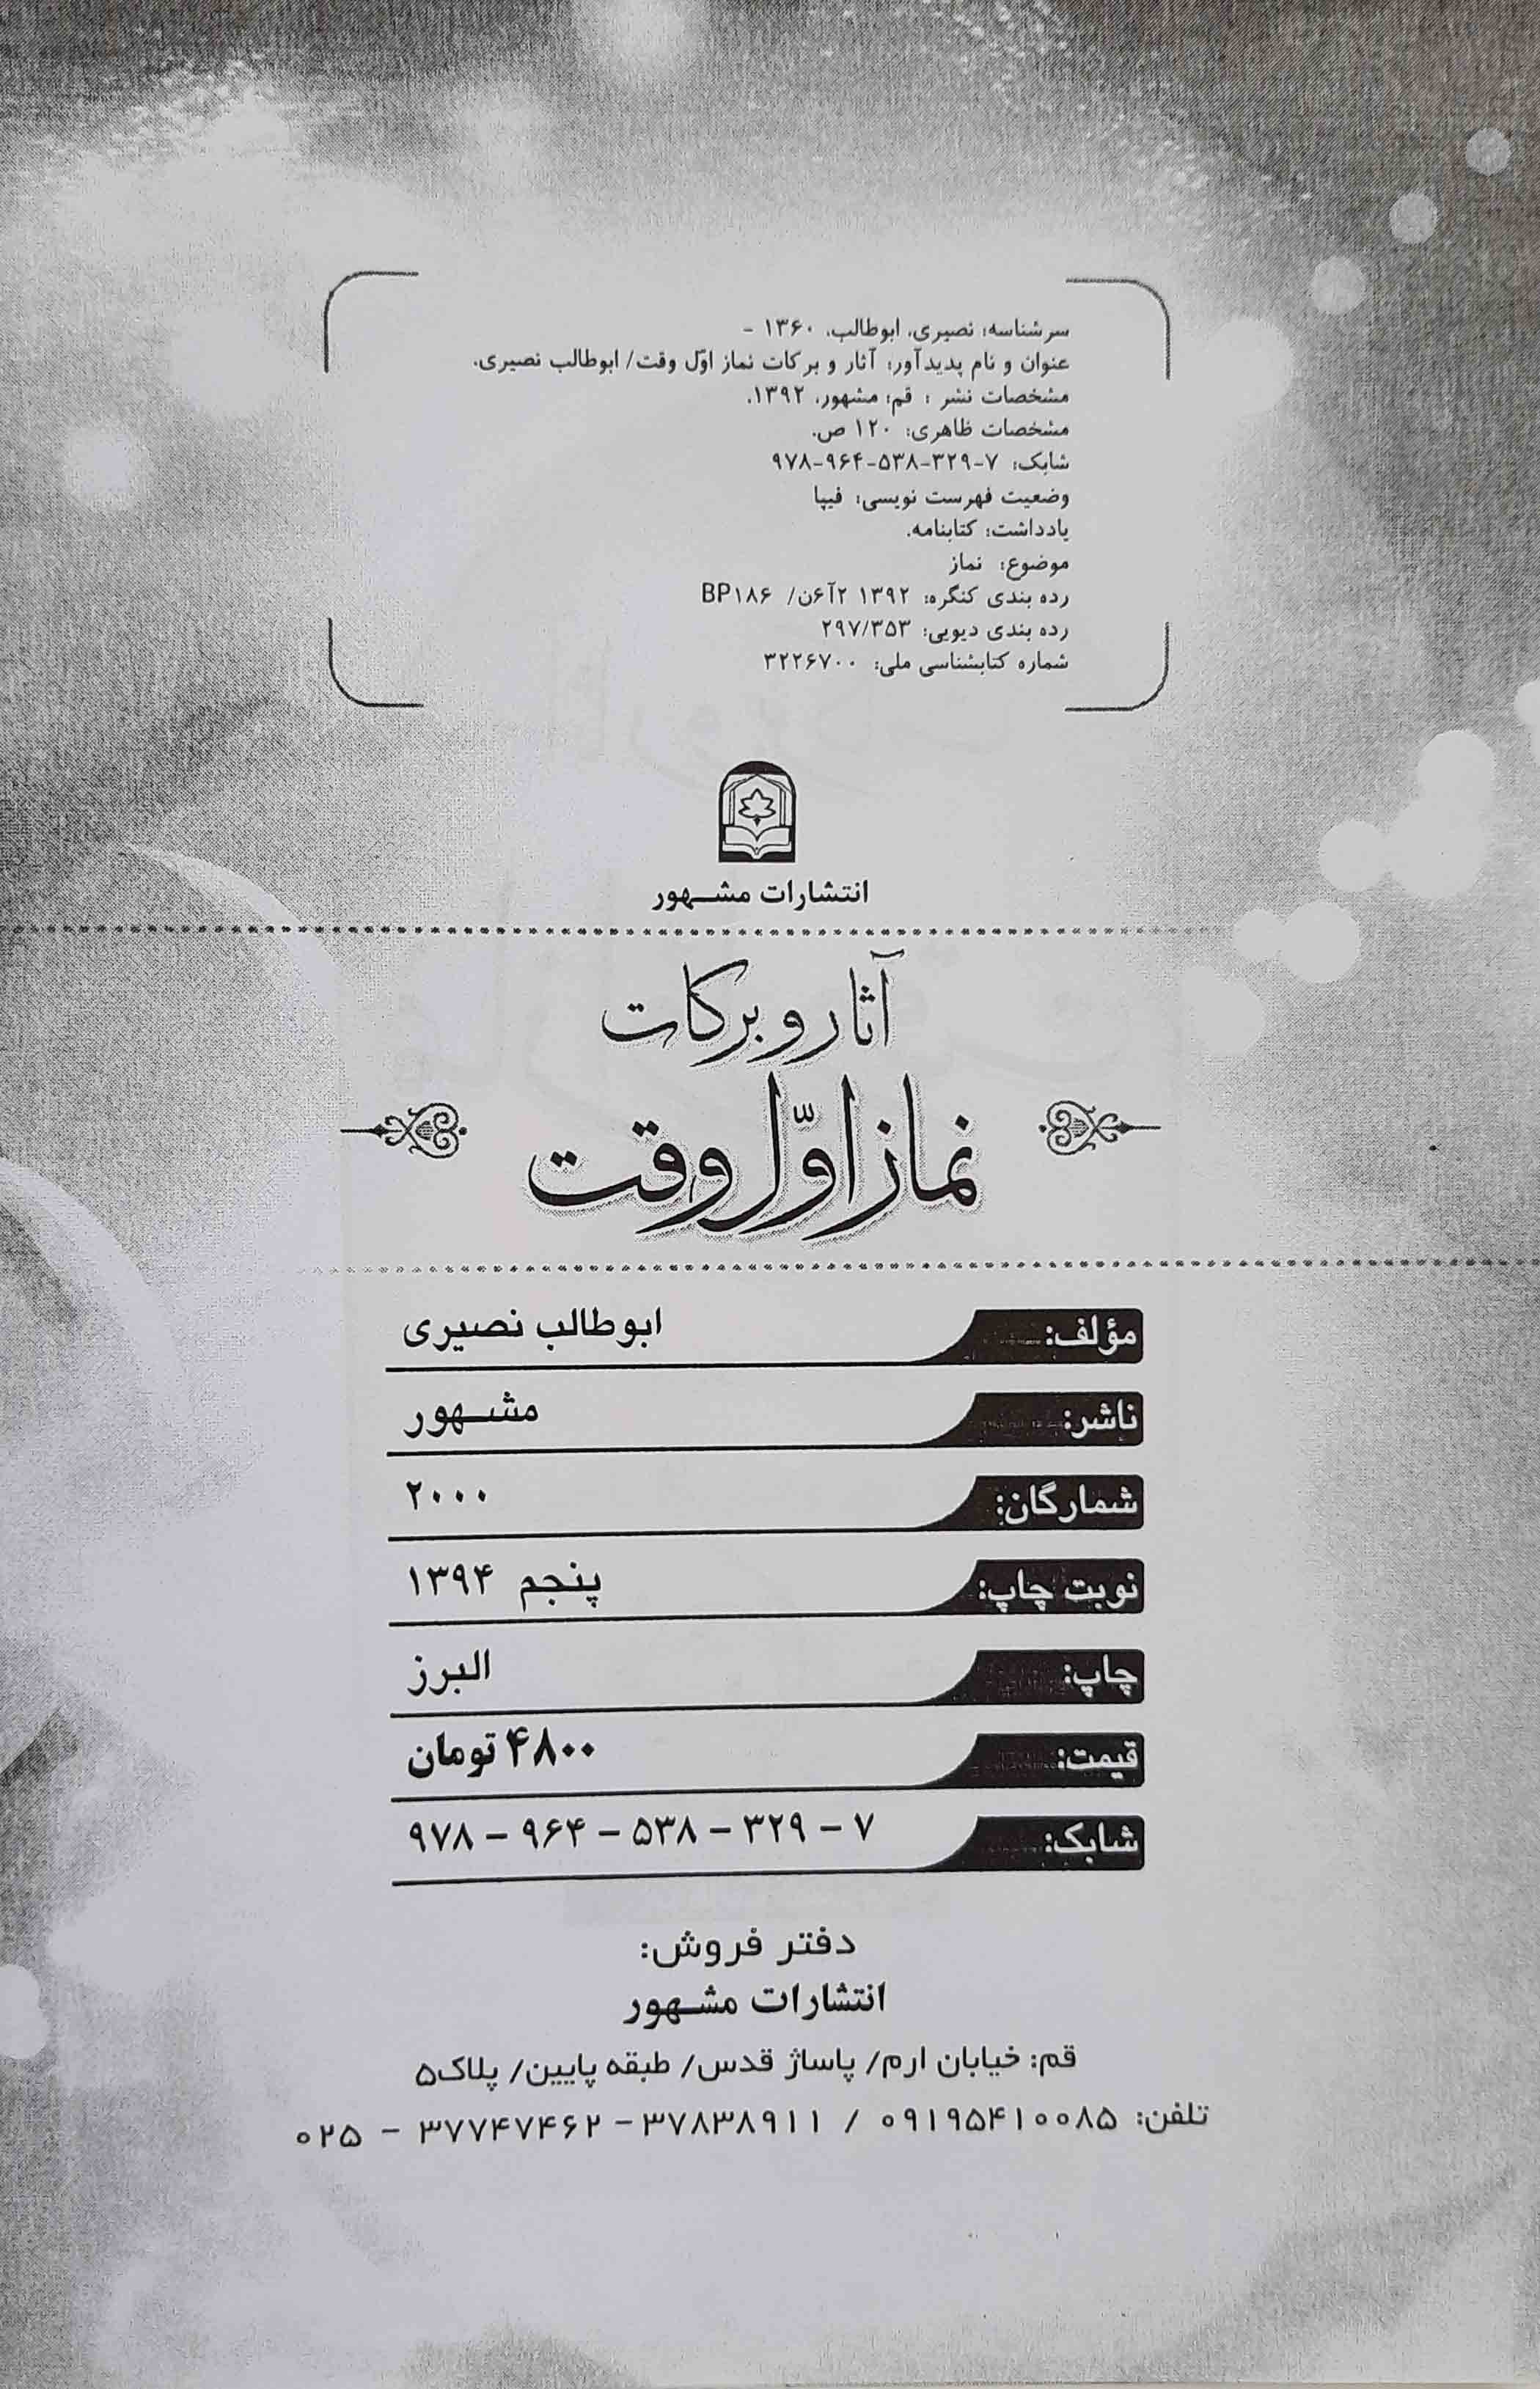 سرشناسه: نصیری، ابوطالب، ۱۳۶۰ -
عنوان و نام پدیدآور: آثار و برکات نماز اوّل وقت/ ابوطالب نصیری.
مشخصات نشر : قم: مشهور، ۱۳۹۲.
مشخصات ظاهری: ۱۲۰ ص.
شابک: ۷-۳۲۹-۵۳۸-۹۶۴-۹۷۸
وضعیت فهرست نویسی: فیپا
یادداشت: کتابنامه.
موضوع: نماز
رده بندی کنگره: ۱۳۹۲ ۲آ۶ن/ BP۱۸۶
رده بندی دیویی: ۲۹۷/۳۵۳
شماره کتابشناسی ملی: ۳۲۲۶۷۰۰
انتشارات مشهور
آثار و برکات
نماز اوّل وقت
مؤلف: ابوطالب نصیری
ناشر: مشهور
شمارگان: ۲۰۰۰
نوبت چاپ: پنجم ۱۳۹۴
چاپ: البرز
قیمت: ۴۸۰۰ تومان
شابک: ۷ - ۳۲۹ - ۵۳۸ - ۹۶۴ - ۹۷۸
دفتر فروش:
انتشارات مشهور
قم: خیابان ارم/ پاساژ قدس/ طبقه پایین/ پلاک۵
تلفن: ۰۹۱۹۵۴۱۰۰۸۵ / ۳۷۸۳۸۹۱۱ - ۳۷۷۴۷۴۶۲ - ۰۲۵